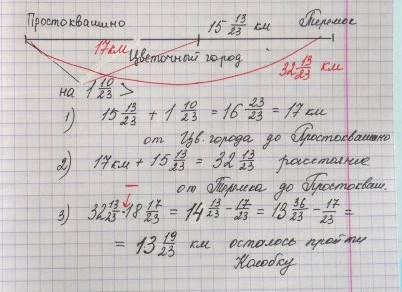 Простоквашино 15 13/23 км Термос
17км Цветочный город 32 13/23 км
на 1 10/23 >
1) 15 13/23 + 1 10/23 = 16 23/23 = 17 км
от Цв. города до Простоквашино
2) 17км + 15 13/23 = 32 13/23 расстояние
от Термса до Простокваш.
3) 32 13/23 - 18 17/23 = 14 13/23 - 17/23 = 13 36/23 - 17/23 =
= 13 19/23 км осталось пройти
Колобку